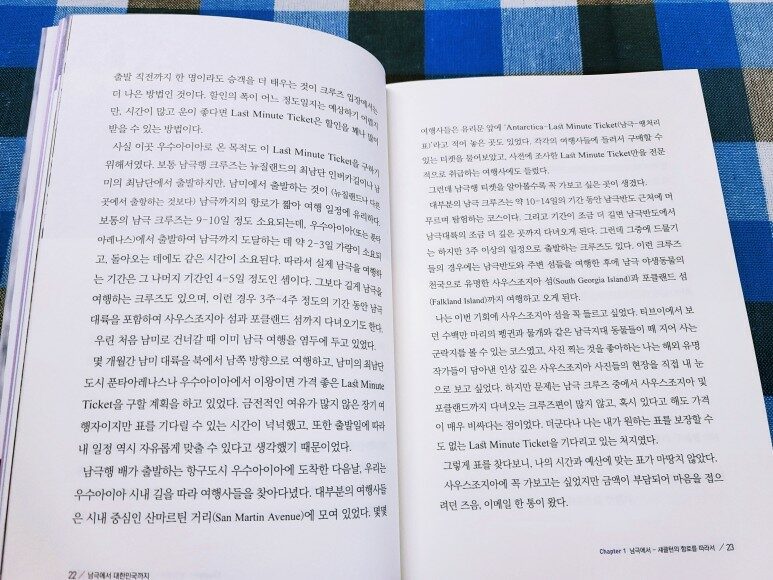 출발 직전까지 한 명이라도 승객을 더 태우는 것이 크루즈 입장에서는
더 나은 방법인 것이다. 할인의 폭이 어느 정도일지는 예상하기 어렵지
만, 시간이 많고 운이 좋다면 Last Minute Ticket은 할인을 꽤나 많이
받을 수 있는 방법이다.
사실 이곳 우수아이아로 온 목적도 이 Last Minute Ticket을 구하기
위해서였다. 보통 남극행 크루즈는 뉴질랜드의 최남단 인버카길이나 남
미의 최남단에서 출발하지만, 남미에서 출발하는 것이 (뉴질랜드나 다른
곳에서 출항하는 것보다) 남극까지의 항로가 짧아 여행 일정에 유리하다.
보통의 남극 크루즈는 9-10일 정도 소요되는데, 우수아이아(또는 푼타
아레나스)에서 출발하여 남극까지 도달하는 데 약 2-3일 가량이 소요되
고, 돌아오는 데에도 같은 시간이 소요된다. 따라서 실제 남극을 여행하
는 기간은 그 나머지 기간인 4-5일 정도인 셈이다. 그보다 길게 남극을
여행하는 크루즈도 있으며, 이런 경우 3주-4주 정도의 기간 동안 남극
대륙을 포함하여 사우스조지아 섬과 포클랜드 섬까지 다녀오기도 한다.
우린 처음 남미로 건너갈 때 이미 남극 여행을 염두에 두고 있었다.
몇 개월간 남미 대륙을 북에서 남쪽 방향으로 여행하고, 남미의 최남단
도시 푼타아레나스나 우수아이아에서 이왕이면 가격 좋은 Last Minute
Ticket을 구할 계획을 하고 있었다. 금전적인 여유가 많지 않은 장기 여
행자이지만 표를 기다릴 수 있는 시간이 넉넉했고, 또한 출발일에 따라
내 일정 역시 자유롭게 맞출 수 있다고 생각했기 때문이었다.
남극행 배가 출발하는 항구도시 우수아이아에 도착한 다음날, 우리는
우수아이아 시내 길을 따라 여행사들을 찾아다녔다. 대부분의 여행사들
은 시내 중심인 산마르틴 거리(San Martin Avenue)에 모여 있었다. 몇몇
22 / 남극에서 대한민국까지
여행사들은 유리문 앞에 'Antarctica-Last Minute Ticket(남극-땡처리
표)'라고 적어 놓은 곳도 있었다. 각각의 여행사들에 들러서 구매할 수
있는 티켓을 물어보았고, 사전에 조사한 Last Minute Ticket만을 전문
적으로 취급하는 여행사에도 들렀다.
그런데 남극행 티켓을 알아볼수록 꼭 가보고 싶은 곳이 생겼다.
대부분의 남극 크루즈는 약 10-14일의 기간 동안 남극반도 근처에 머
무르며 탐험하는 코스이다. 그리고 기간이 조금 더 길면 남극반도에서
남극대륙의 조금 더 깊은 곳까지 다녀오게 된다. 그런데 그중에 드물기
는 하지만 3주 이상의 일정으로 출발하는 크루즈도 있다. 이런 크루즈
들의 경우에는 남극반도와 주변 섬들을 여행한 후에 남극 야생동물의
천국으로 유명한 사우스조지아 섬(South Georgia Island)과 포클랜드 섬
(Falkland Island)까지 여행하고 오게 된다.
나는 이번 기회에 사우스조지아 섬을 꼭 들르고 싶었다. 티브이에서 보
던 수백만 마리의 펭귄과 물개와 같은 남극지대 동물들이 떼 지어 사는
군락지를 볼 수 있는 코스였고, 사진 찍는 것을 좋아하는 나는 해외 유명
작가들이 담아낸 인상 깊은 사우스조지아 사진들의 현장을 직접 내 눈
으로 보고 싶었다. 하지만 문제는 남극 크루즈 중에서 사우스조지아 및
포클랜드까지 다녀오는 크루즈편이 많지 않고, 혹시 있다고 해도 가격
이 매우 비싸다는 점이었다. 더군다나 나는 내가 원하는 표를 보장할 수
도 없는 Last Minute Ticket을 기다리고 있는 처지였다.
그렇게 표를 찾다보니, 나의 시간과 예산에 맞는 표가 마땅치 않았다.
사우스조지아에 꼭 가보고는 싶었지만 금액이 부담되어 마음을 접으
려던 즈음, 이메일 한 통이 왔다.
Chapter 1 남극에서 - 섀클턴의 항로를 따라서 / 23